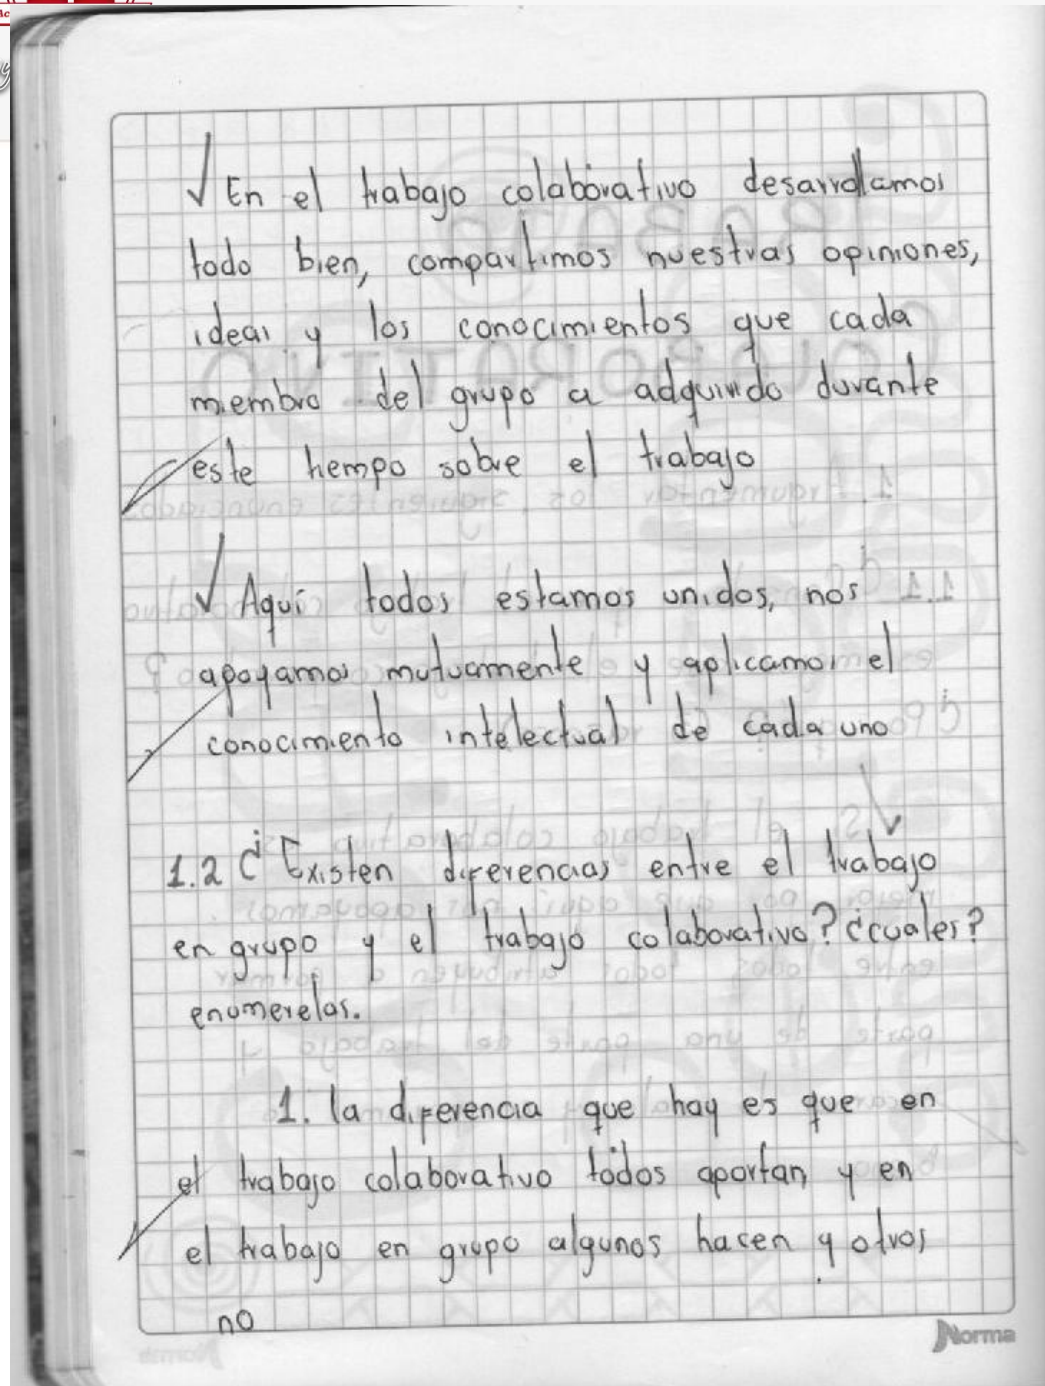 √ En el trabajo colaborativo desarrollamos
todo bien, compartimos nuestras opiniones,
ideas y los conocimientos que cada
miembro del grupo a adquirido durante
este tiempo sobre el trabajo
√ Aqui todos estamos unidos, nos
apoyamos mutuamente y aplicamos el
conocimiento intelectual de cada uno
1.2 ¿Existen diferencias entre el trabajo
en grupo y el trabajo colaborativo? ¿cuales?
enumerelas.
1. la diferencia que hay es que en
el trabajo colaborativo todos aportan y en
el trabajo en grupo algunos hacen y otros
no
Norma